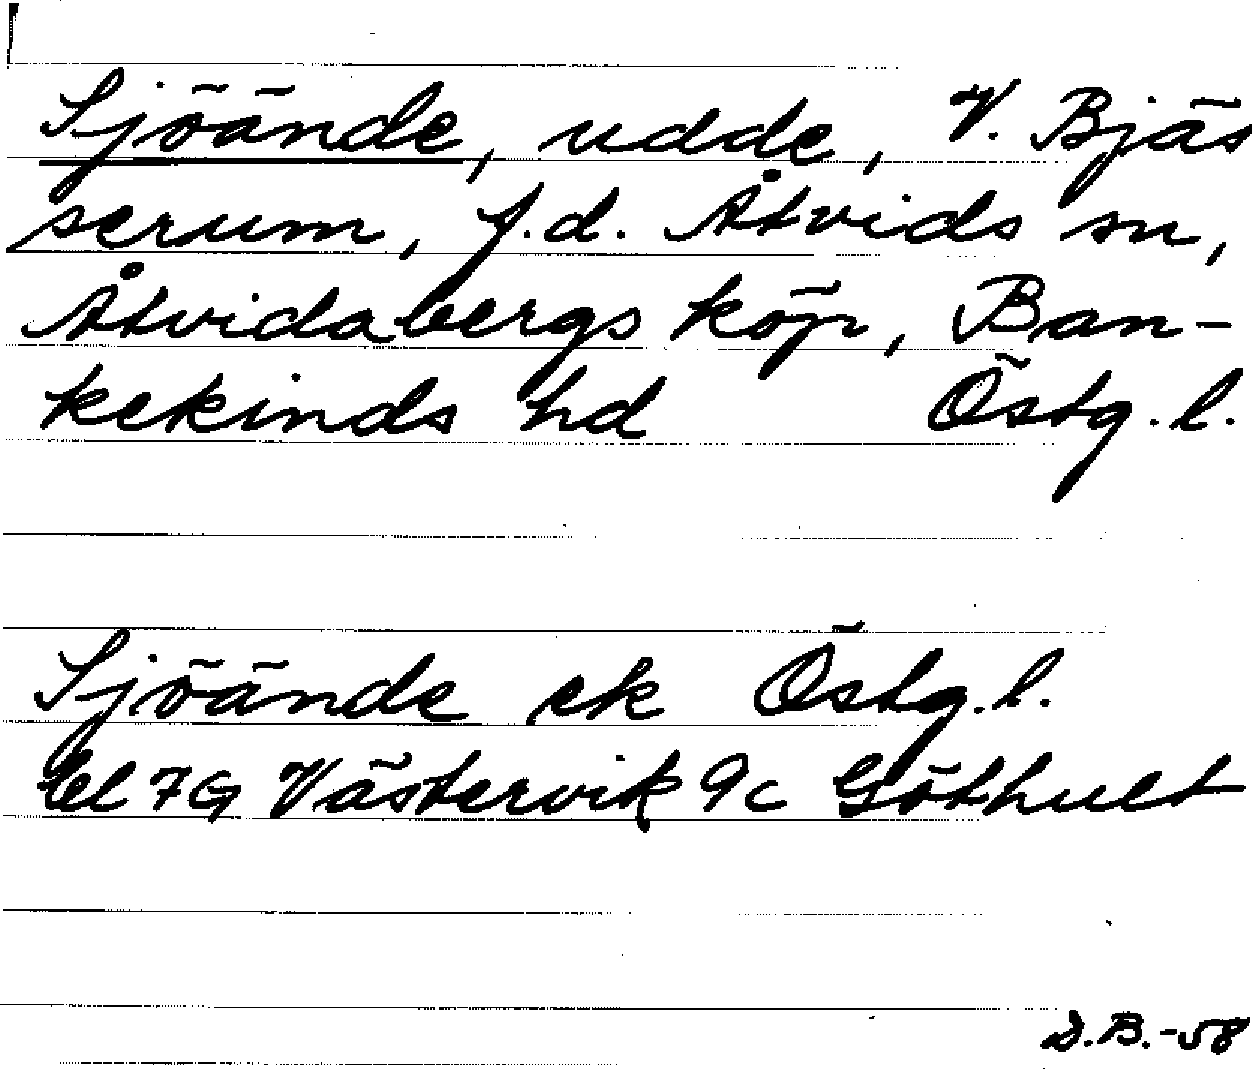 Sjöände, udde, V. Bjäs
serum, f.d. Åtvids sn,
Åtvidabergs köp, Ban-
kekinds hd Östg.l.
Sjöände ek Östg.l.
bl 7G Västervik 9c Göthult
D.B.-58